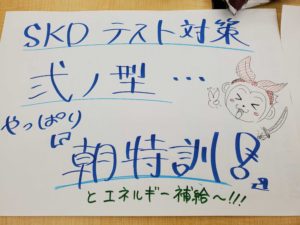 SKD テスト対策
弐ノ型…
やっぱり
朝特訓!
とエネルギー補給～!!!